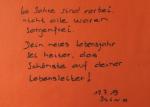 60 Jahre sind vorbei.
nicht alle waren
sorgenfrei.
Dein neues Lebensjahr
sei heiter, das
Schönste auf deiner
Lebensleiter!